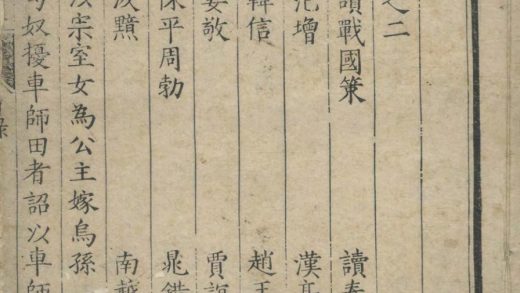 之二
讀戰國策 讀
范增 漢
韓信 趙王
婁敬 賈誼
陳平周勃 晁錯
汲黯 南越
以宗室女為公主嫁烏孫
匈奴擾車師田者詔以車師